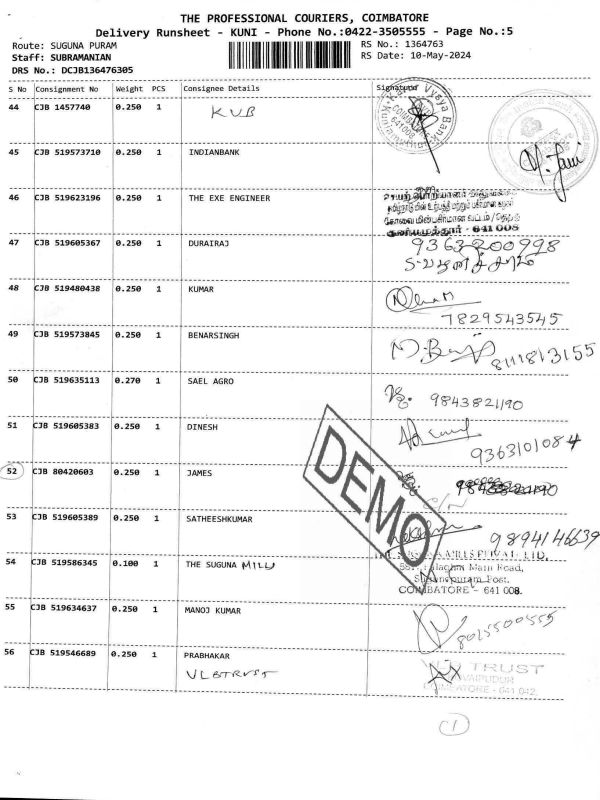 THE PROFESSIONAL COURIERS, COIMBATORE
Delivery Runsheet - KUNI - Phone No.:0422-3505555 - Page No.:5
Route: SUGUNA PURAM RS No.: 1364763
Staff: SUBRAMANIAN RS Date: 10-May-2024
DRS No.: DCJB136476305
S No Consignment No Weight PCS Consignee Details Signature
44 CJB 1457740 0.250 1 KVB
45 CJB 519573710 0.250 1 INDIANBANK
46 CJB 519623196 0.250 1 THE EXE ENGINEER
641 008
47 CJB 519605367 0.250 1 DURAIRAJ 9363200998
48 CJB 519480438 0.250 1 KUMAR
7829543545
49 CJB 519573845 0.250 1 BENARSINGH 8111813155
50 CJB 519635113 0.270 1 SAEL AGRO 9843821190
51 CJB 519605383 0.250 1 DINESH
9363101084
52 CJB 80420603 0.250 1 JAMES
DEMO
53 CJB 519605389 0.250 1 SATHEESHKUMAR 9894146639
54 CJB 519586345 0.100 1 THE SUGUNA MILL
Main Road,
Post.
COIMBATORE - 641 008.
55 CJB 519634637 0.250 1 MANOJ KUMAR 8025500555
56 CJB 519546689 0.250 1 PRABHAKAR
VLBTRUST TRUST
COIMBATORE - 641 042.
1